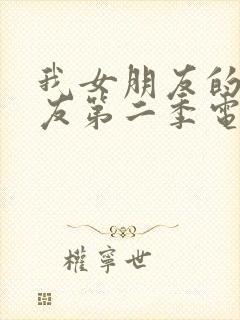 我女朋友的
友第二季电
權寧世